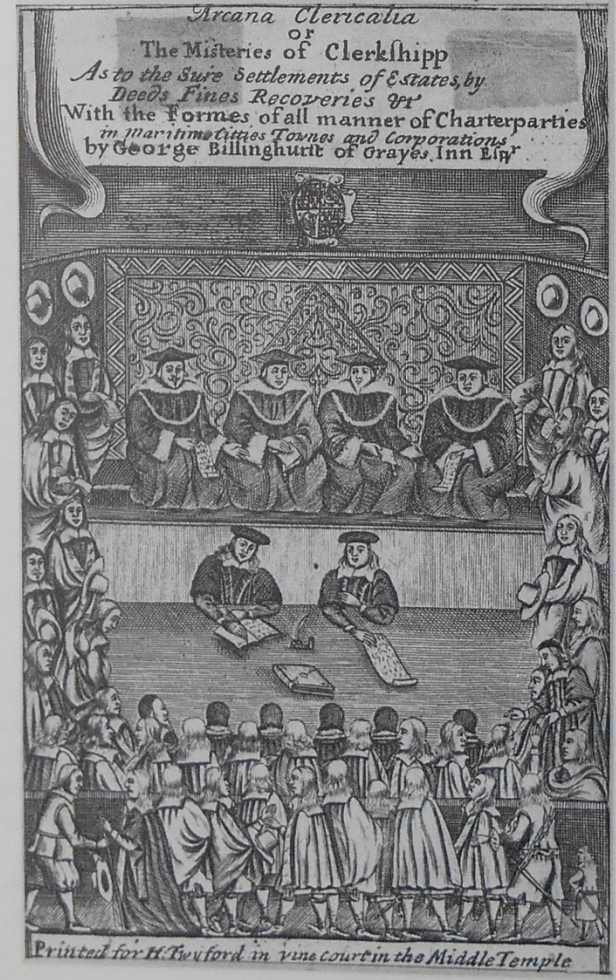 Arcana Clericalia
or
The Misteries of Clerkſhipp
As to the Sure Settlements of Estates, by
Deeds Fines Recoveries &c
With the Formes of all manner of Charterparties
in Maritime Citties Townes and Corporations
by George Billinghurst of Grayes Inn Esqr
Printed for H. Twyford in vine court in the Middle Temple